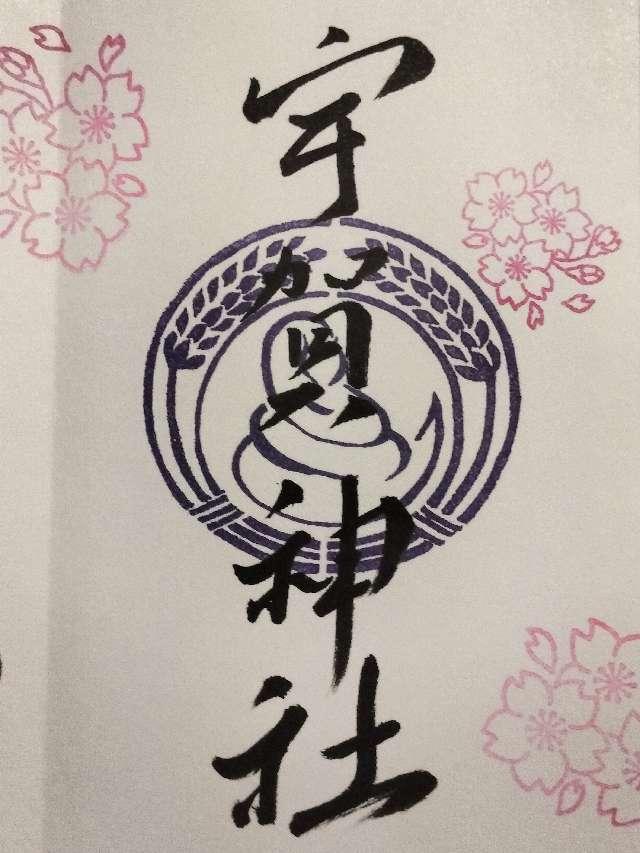 宇賀神社